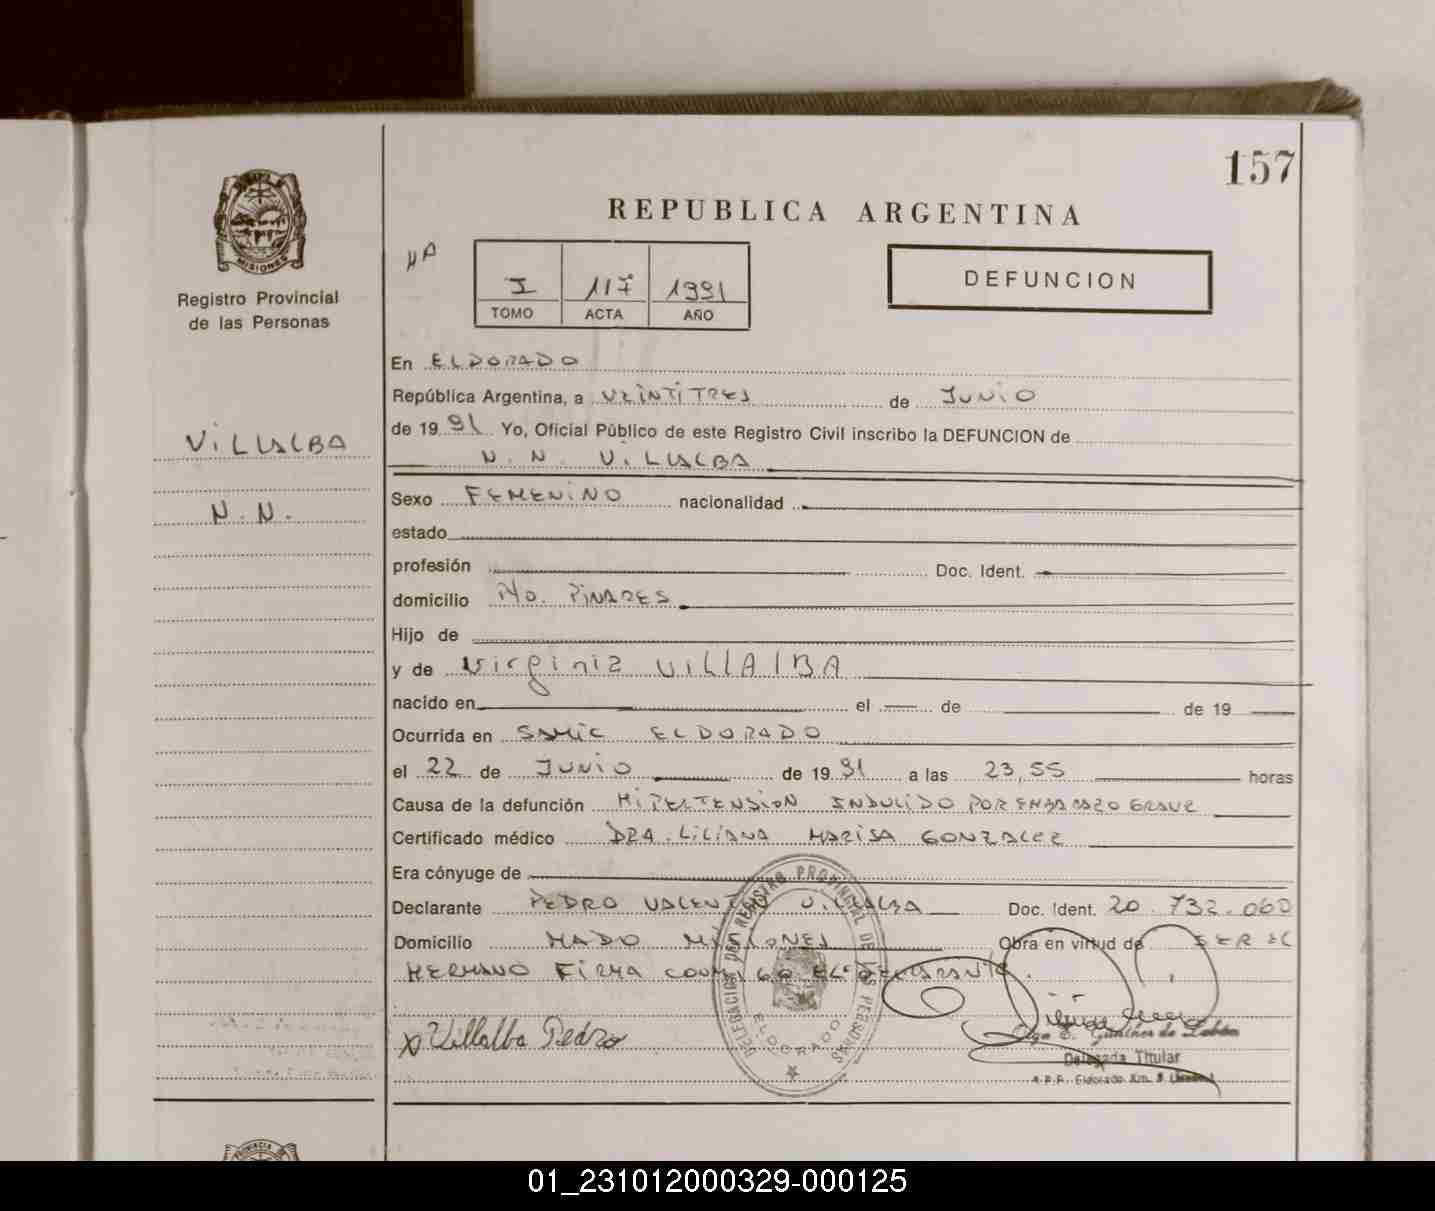 157
REPUBLICA ARGENTINA
PROVINCIA DE
MISIONES
Registro Provincial
de las Personas
I 117 1991
TOMO ACTA AÑO
DEFUNCION
VILLALBA
N.N.
En ELDORADO
República Argentina, a VEINTITRES de JUNIO
de 1991 Yo, Oficial Público de este Registro Civil inscribo la DEFUNCION de
N. N. VILLALBA
Sexo FEMENINO nacionalidad
estado
profesión Doc. Ident.
domicilio Pto. PINARES
Hijo de
y de Virginia VILLALBA
nacido en el de de 19
Ocurrida en SAMIC ELDORADO
el 22 de JUNIO de 1991 a las 23,55 horas
Causa de la defunción HIPERTENSION INDUCIDO POR EMBARAZO GRAVE
Certificado médico DRA. LILIANA MARISA GONZALEZ
Era cónyuge de
Declarante PEDRO VALENTIN VILLALBA Doc. Ident. 20.732.060
Domicilio MADO MISIONES Obra en virtud de SER EL
HERMANO FIRMA CONMIGO EL DECLARANTE.
x Villalba Pedro
DELEGACION DEL REGISTRO PROVINCIAL DE LAS PERSONAS
ELDORADO
Olga E. Günther de
Delegada Titular
R.P.P. Eldorado Km. 9
PROVINCIA DE
01_231012000329-000125